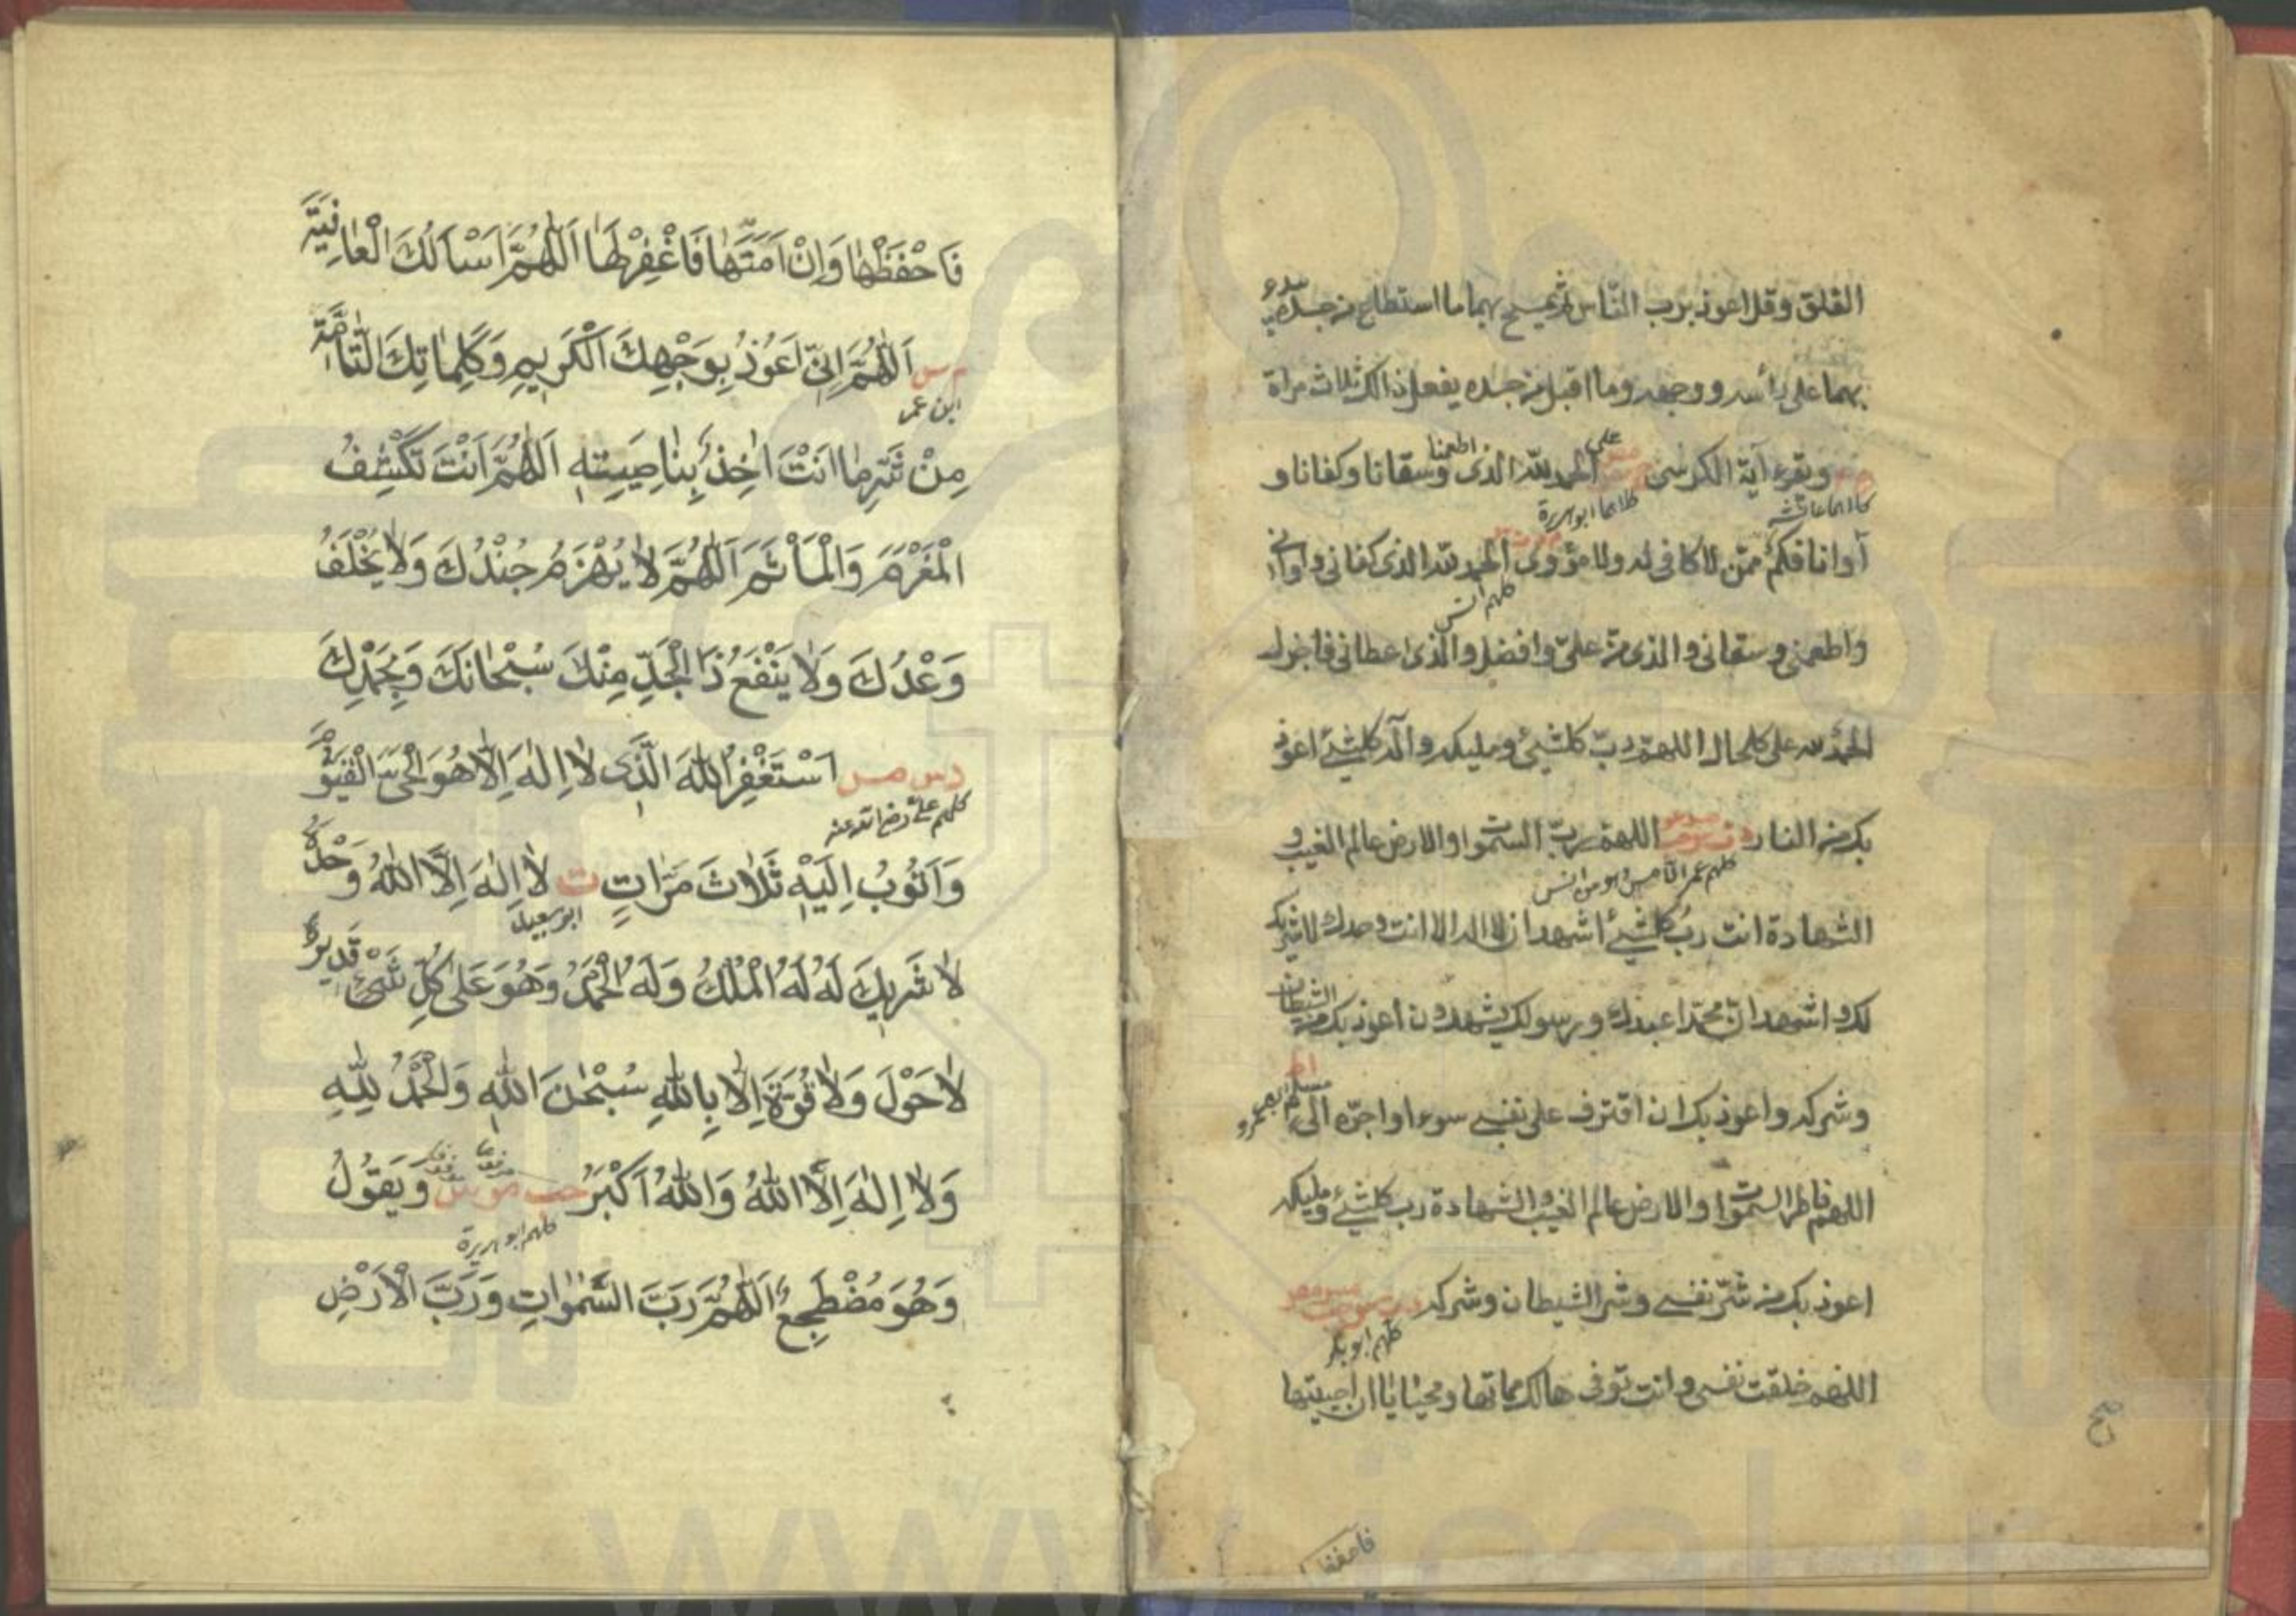 الفلق وقل اعوذ برب الناس ثم يمسح بهما ما استطاع من جسده يبدء
بهما على رأسه ووجهه وما اقبل من جسده يفعل ذالك ثلاث مراة
ويقرء آية الكرسى الحمد لله الذى اطعمنا وسقانا وكفانا و
على
كلاهما عائشه
كلاهما ابو هريرة
آوانا فكم ممن لا كافى له ولا مؤوى الحمد لله الذى كفانى واوانى
كلهم انس
واطعمنى وسقانى والذى من علىّ وافضل والذى اعطانى فاجزل
الحمد لله على كلحال اللهم ربّ كلشيئ ومليكه واله كلشيئ اعوذ
بك من النار اللهم ربّ السموات والارض عالم الغيب و
الشهادة انت ربّ كلشيئ اشهد ان لا اله الا انت وحدك لا شريك
لك واشهد ان محمدا عبدك ورسولك يشهدون اعوذ بك من الشيطان
وشركه واعوذ بك ان اقترف على نفسى سوءا او اجرّه الى مسلم
اللهم فاطر السموات والارض عالم الغيب والشهادة رب كلشيئ ومليكه
اعوذ بك من شرّ نفسى وشر الشيطان وشركه
كلهم ابو بكر
اللهم خلقت نفسى وانت توفى هالك مماتها ومحياياا ان احييتها
فاحفظها
فَاحْفَظْهٰا وَاِنْ اَمَتَّهٰا فَاغْفِرْلَهٰا اَللّٰهُمَّ اَسْاَلُكَ الْعٰافِيَةَ
م س اَللّٰهُمَّ اِنّى اَعُوْذُ بِوَجْهِكَ الْكَرِيمِ وَكَلِمٰاتِكَ التّٰامَّةِ
ابن عمر
مِنْ شَرِّ مٰا اَنْتَ اٰخِذٌ بِنٰاصِيَتِهِ اَللّٰهُمَّ اَنْتَ تَكْشِفُ
الْمَغْرَمَ وَالْمَأْثَمَ اَللّٰهُمَّ لاٰ يُهْزَمُ جُنْدُكَ وَلاٰ يُخْلَفُ
وَعْدُكَ وَلاٰ يَنْفَعُ ذَا الْجَدِّ مِنْكَ سُبْحٰانَكَ وَبِحَمْدِكَ
د س مص اَسْتَغْفِرُ اللّٰهَ الَّذى لاٰ اِلٰهَ اِلاّٰ هُوَ الْحَىَّ الْقَيّوُمَ
كلهم على رضى الله عنه
وَاَتُوْبُ اِلَيْهِ ثَلاٰثَ مَرّٰاتٍ ت لاٰ اِلٰهَ اِلاَّ اللّٰهُ وَحْدَهُ
ابو سعيد
لاٰ شَرِيكَ لَهُ لَهُ الْمُلْكُ وَلَهُ الْحَمْدُ وَهُوَ عَلىٰ كُلِّ شَىْءٍ قَدِيرٌ
لاٰ حَوْلَ وَلاٰ قُوَّةَ اِلاّٰ بِاللّٰهِ سُبْحٰنَ اللّٰهِ وَالْحَمْدُ لِلّٰهِ
وَلاٰ اِلٰهَ اِلاَّ اللّٰهُ وَاللّٰهُ اَكْبَرُ حب مو س وَيَقُولُ
كلهم ابو هريرة
وَهُوَ مُضْطَجِعٌ اَللّٰهُمَّ رَبَّ السَّمٰوٰاتِ وَرَبَّ الْاَرْضِ